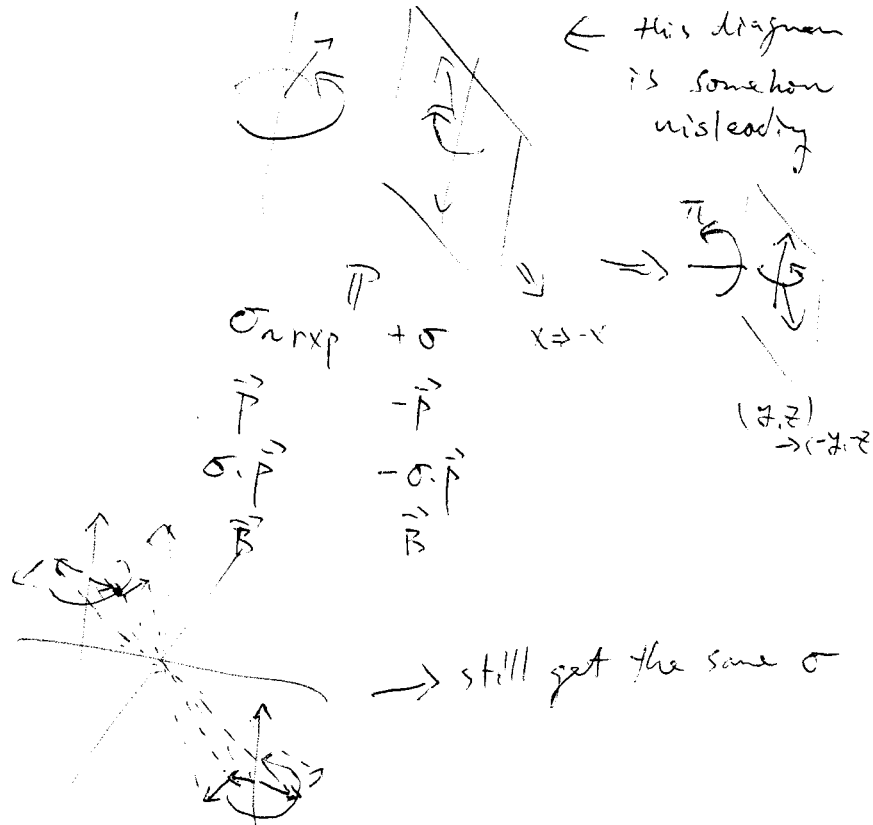 ← this diagram
is somehow
misleading
π
⇒
σ ~ r×p ℙ + σ x ⇒ -x
p⃗ -p⃗
(y,z)
→ (-y,-z
σ·p⃗ -σ·p⃗
B⃗ B⃗
→ still get the same σ